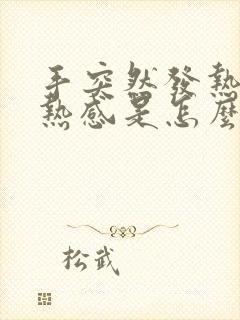 手突然發熱
熱感是怎麼
松武